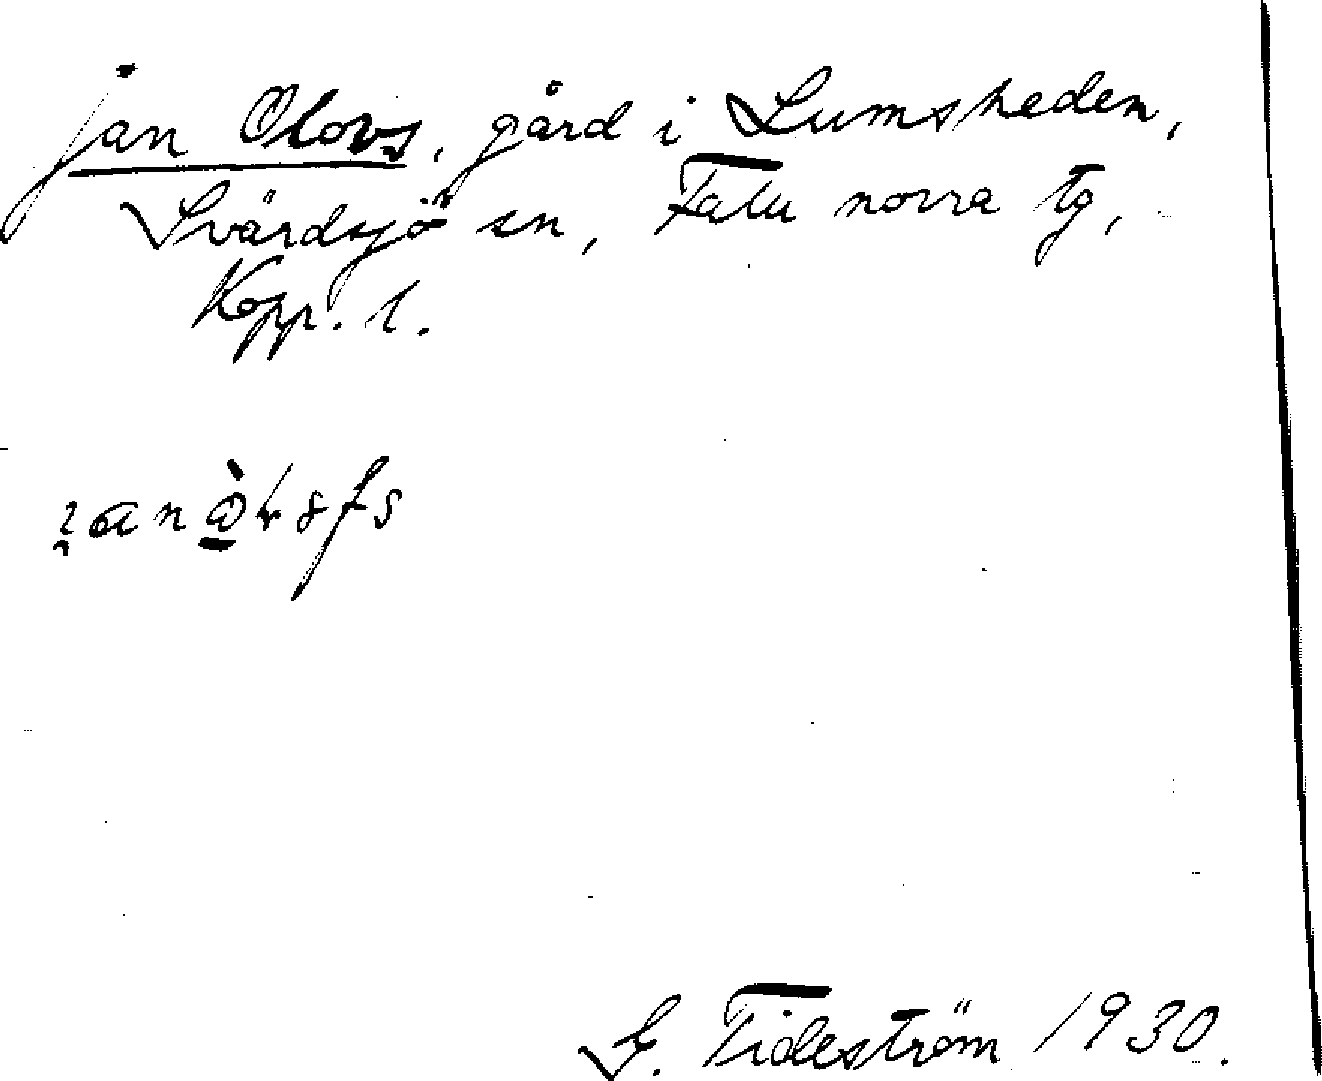 Jan Olovs, gård i Lumsheden,
Svärdsjö sn, Falu norra tg,
Kopp. l.
G. Tideström 1930.